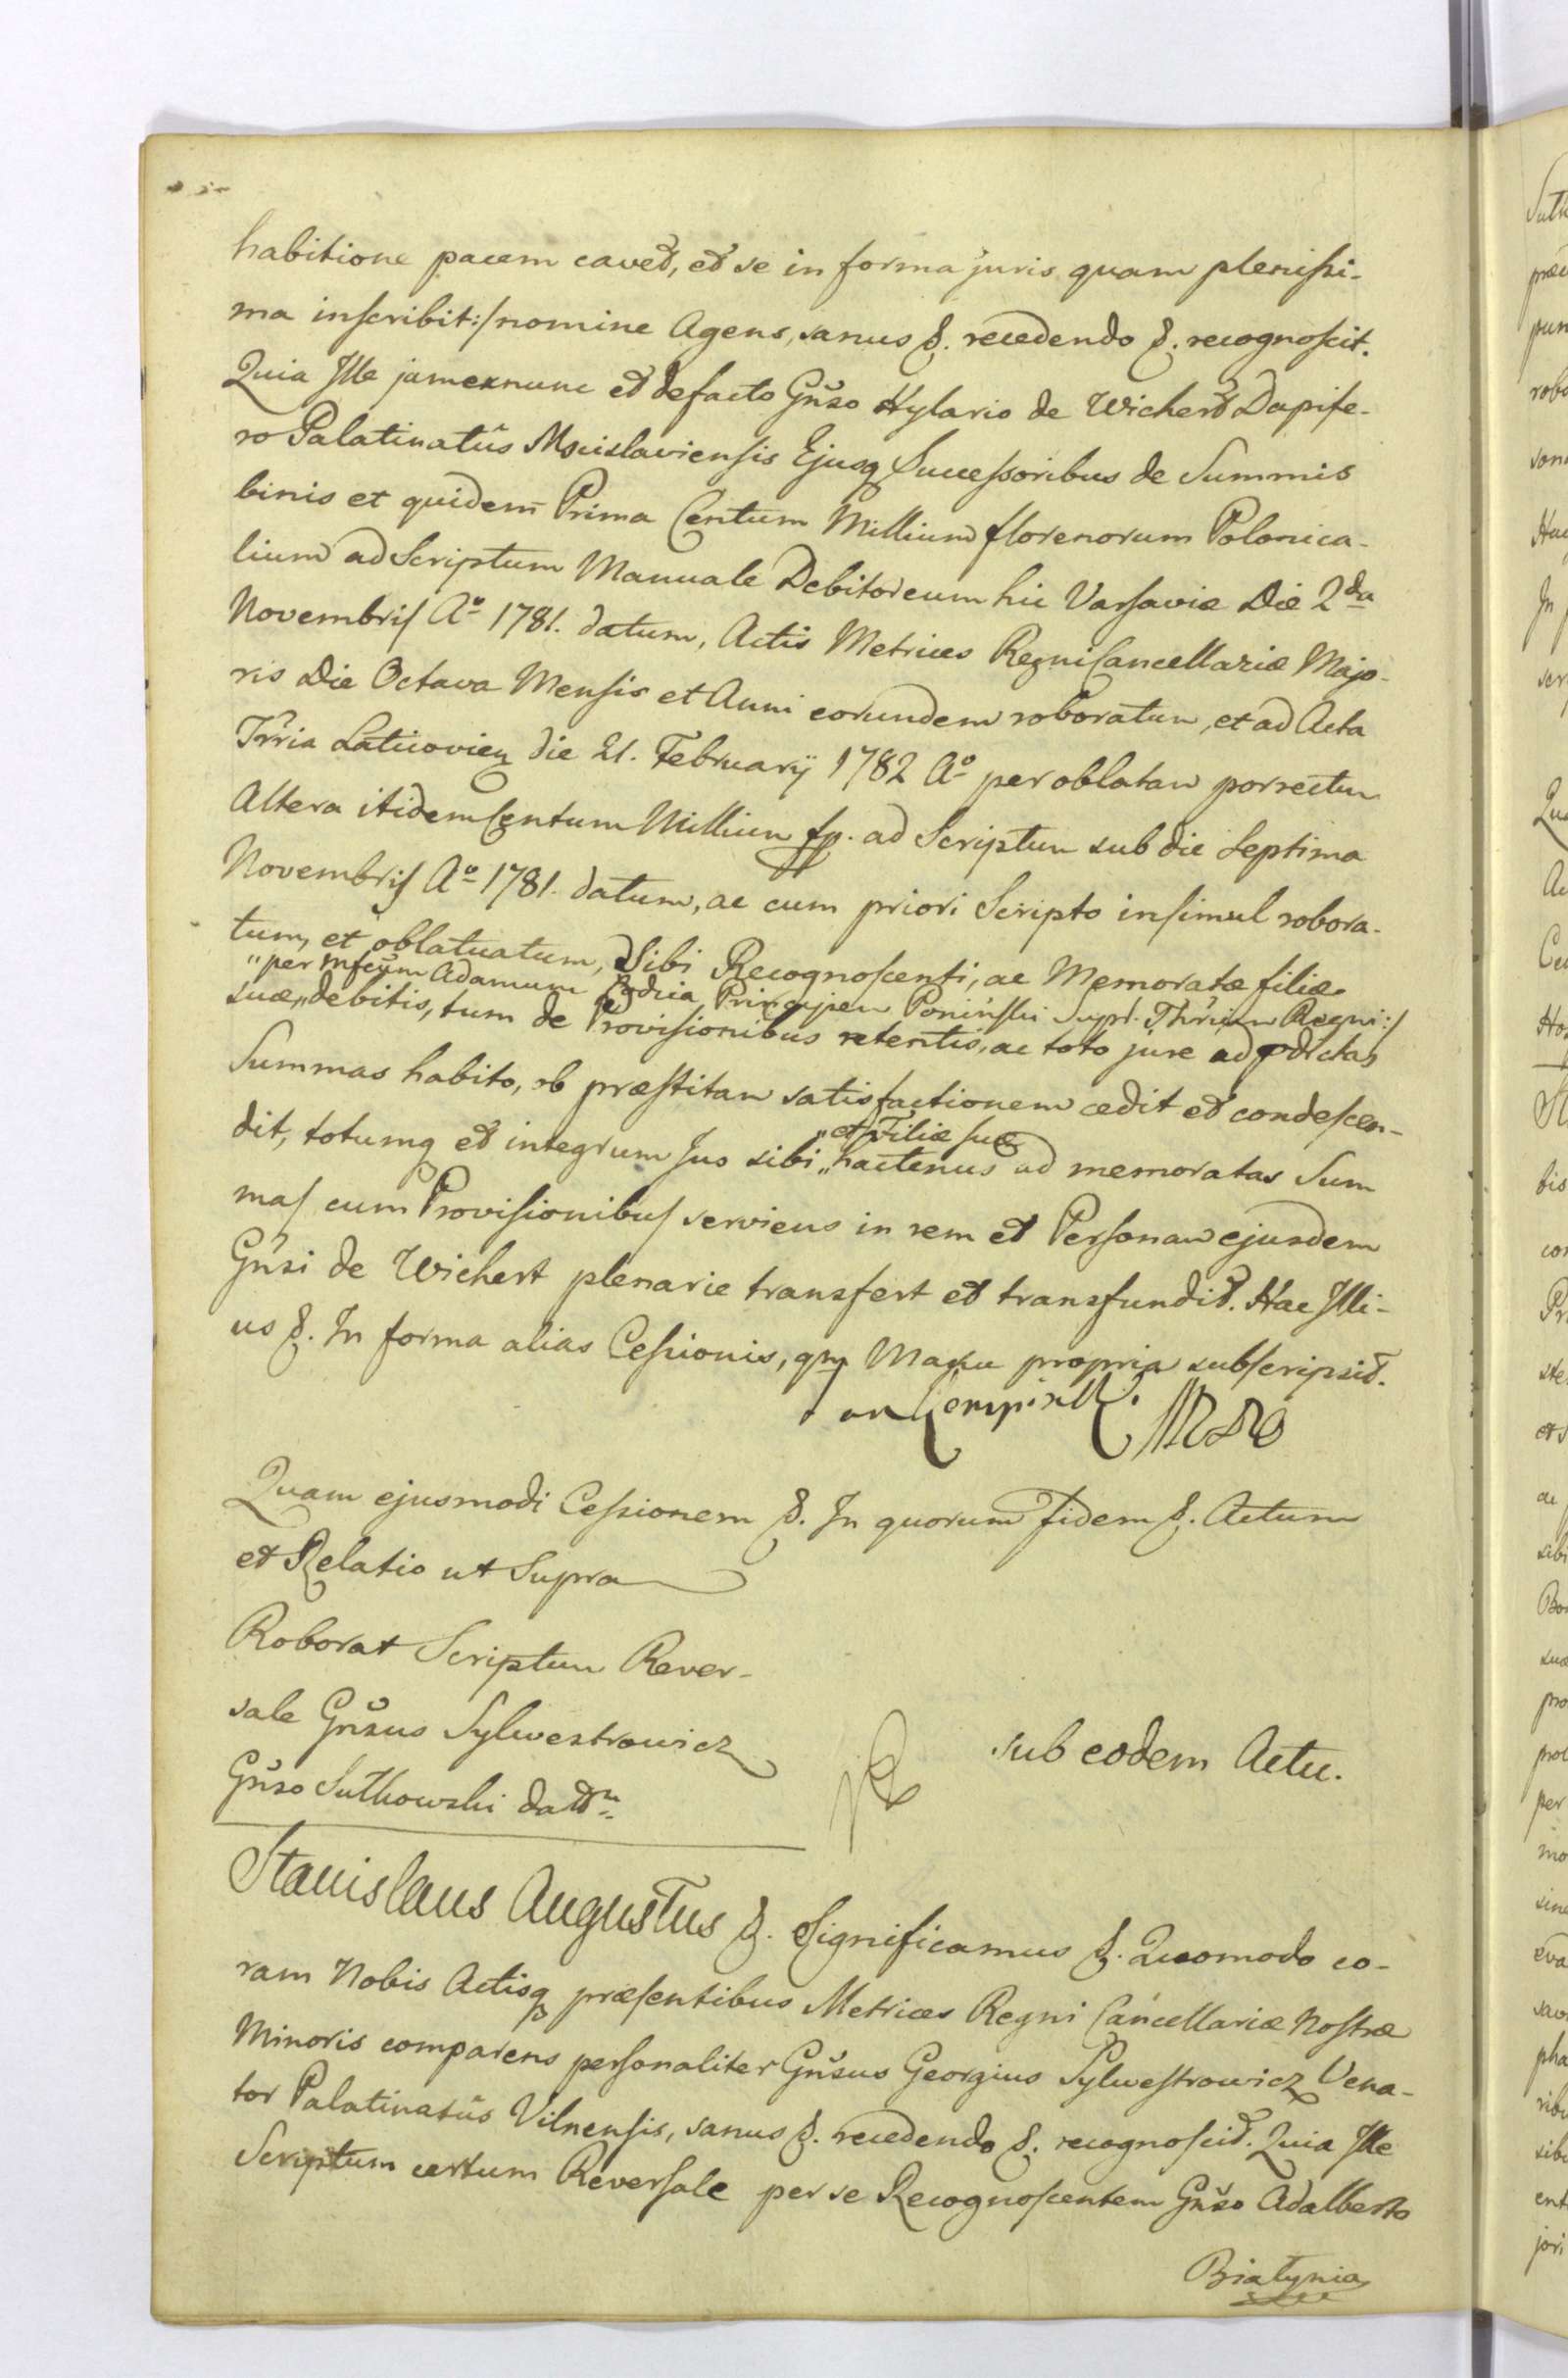 habitione pacem cavet, et se in forma juris quam plenissi-
ma inscribit:/ nomine Agens, sanus &. recedendo &. recognoscit.
Quia Ille jamexnunc et defacto Gnso Hylario de Wichert Dapife-
ro Palatinatûs Mscislaviensis Ejusq Successoribus de Summis
binis et quidem Prima Centum Millium florenorum Polonica-
lium ad Scriptum Manuale Debitoreum hic Varsaviæ Die 2da
Novembris Ao 1781. datum, Actis Metrices Regni Cancellariæ Majo-
ris Die Octava Mensis et Anni eorundem roboratum, et ad Acta
Trria Laticovien die 21. February 1782 Ao per oblatam porrectum
Altera itidem Centum Millium fp. ad Scriptum sub die Septima
Novembris Ao 1781. datum, ac cum priori Scripto insimul robora-
tum, et oblatuatum, Sibi Recognoscenti, ac Memoratæ filiæ
"per Adamum Principem Poniński Supr. Thrium Regni:/
suæ,, debitis, tum de Provisionibus retentis, ac toto jure ad pdictas
Summas habito, ob præstitam satisfactionem cedit et condescen-
"et Filiæ suæ
dit, totumq et integrum Jus sibi,, hactenus ad memoratas Sum
mas cum Provisionibus serviens in rem et Personam ejusdem
Gnsi de Wichert plenarie transfert et transfundit. Hac Illi-
us &. In forma alias Cessionis, qm Manu propria subscripsit.
Quam ejusmodi Cessionem &. In quorum Fidem &. Actum
et Relatio ut Supra
Roborat Scriptum Rever-
sale Gnsus Sylwestrowicz
Gnso Sutkowski datm
sub eodem Actu.
Stanislaus Augustus &. Significamus &. Quomodo co-
ram Nobis Actisq præsentibus Metrices Regni Cancellariæ Nostræ
Minoris comparens personaliter Gnsus Georgius Sylwestrowicz Vena-
tor Palatinatûs Vilnensis, sanus &. recedendo &. recognoscit. Quia Ille
Scriptum certum Reversale per se Recognoscentem Gnso Adalberto
Białynia